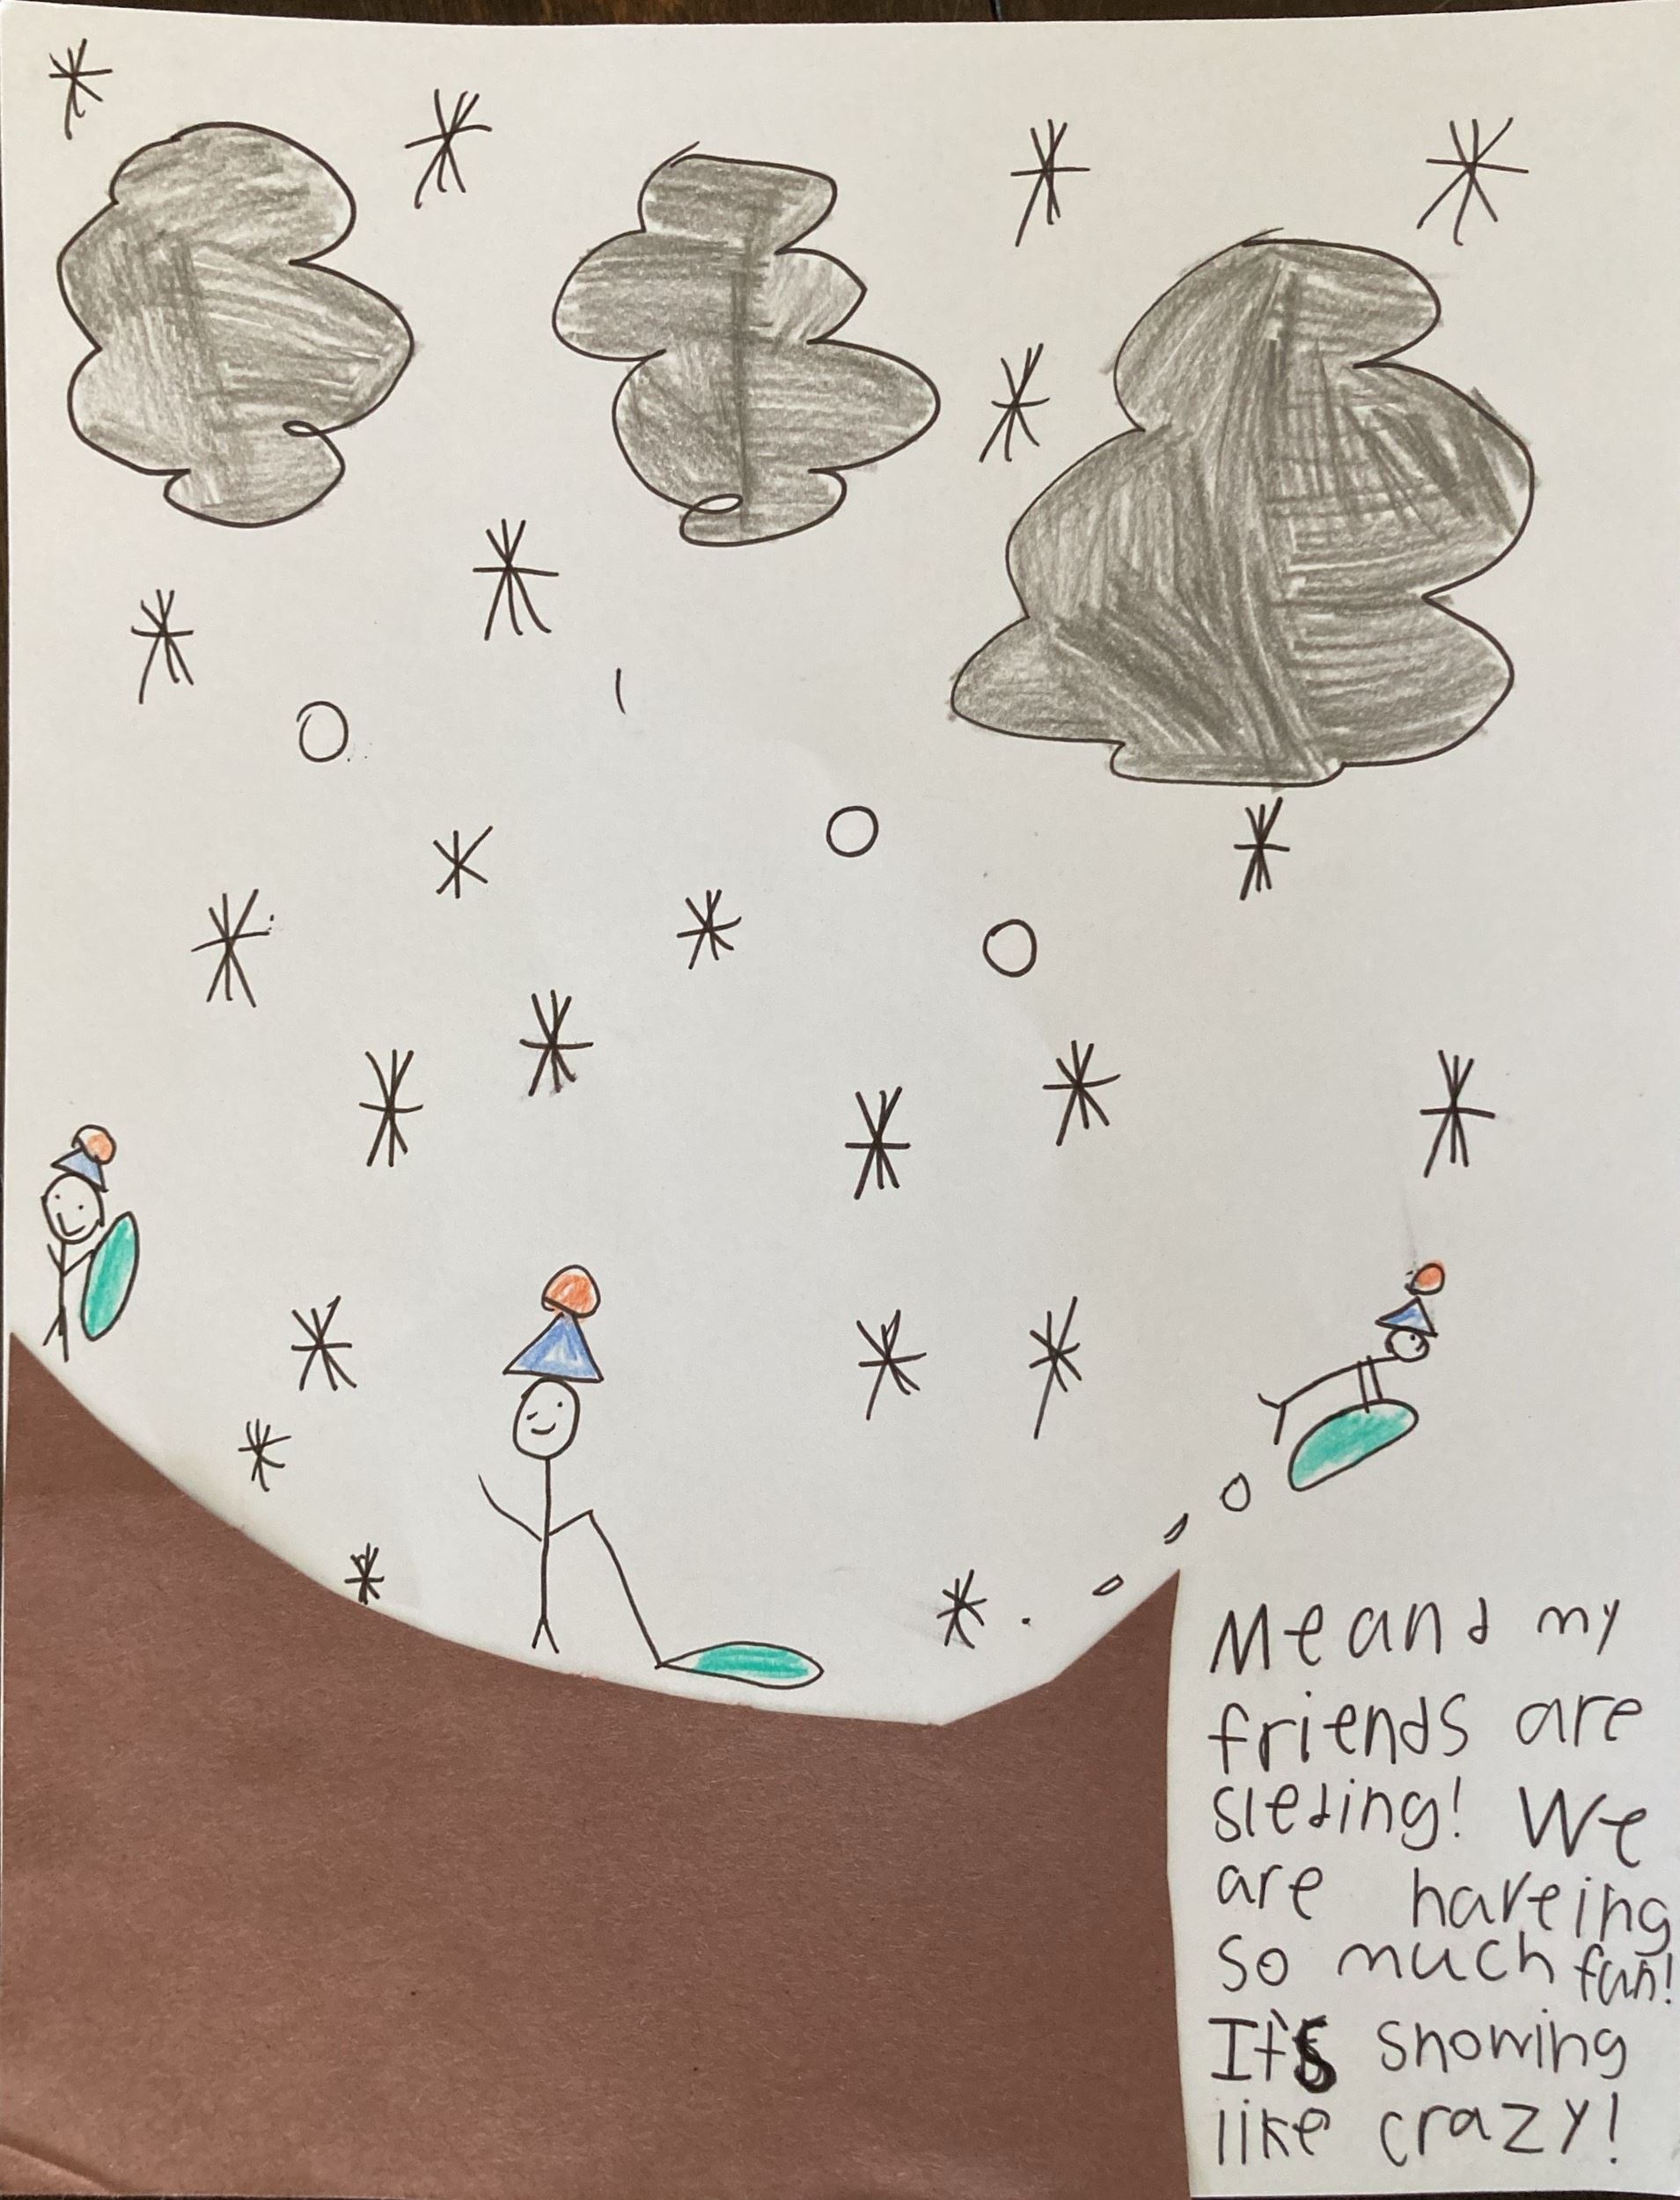 Me and my
friends are
sleding! We
are haveing
so much fun!
It's snowing
like crazy!